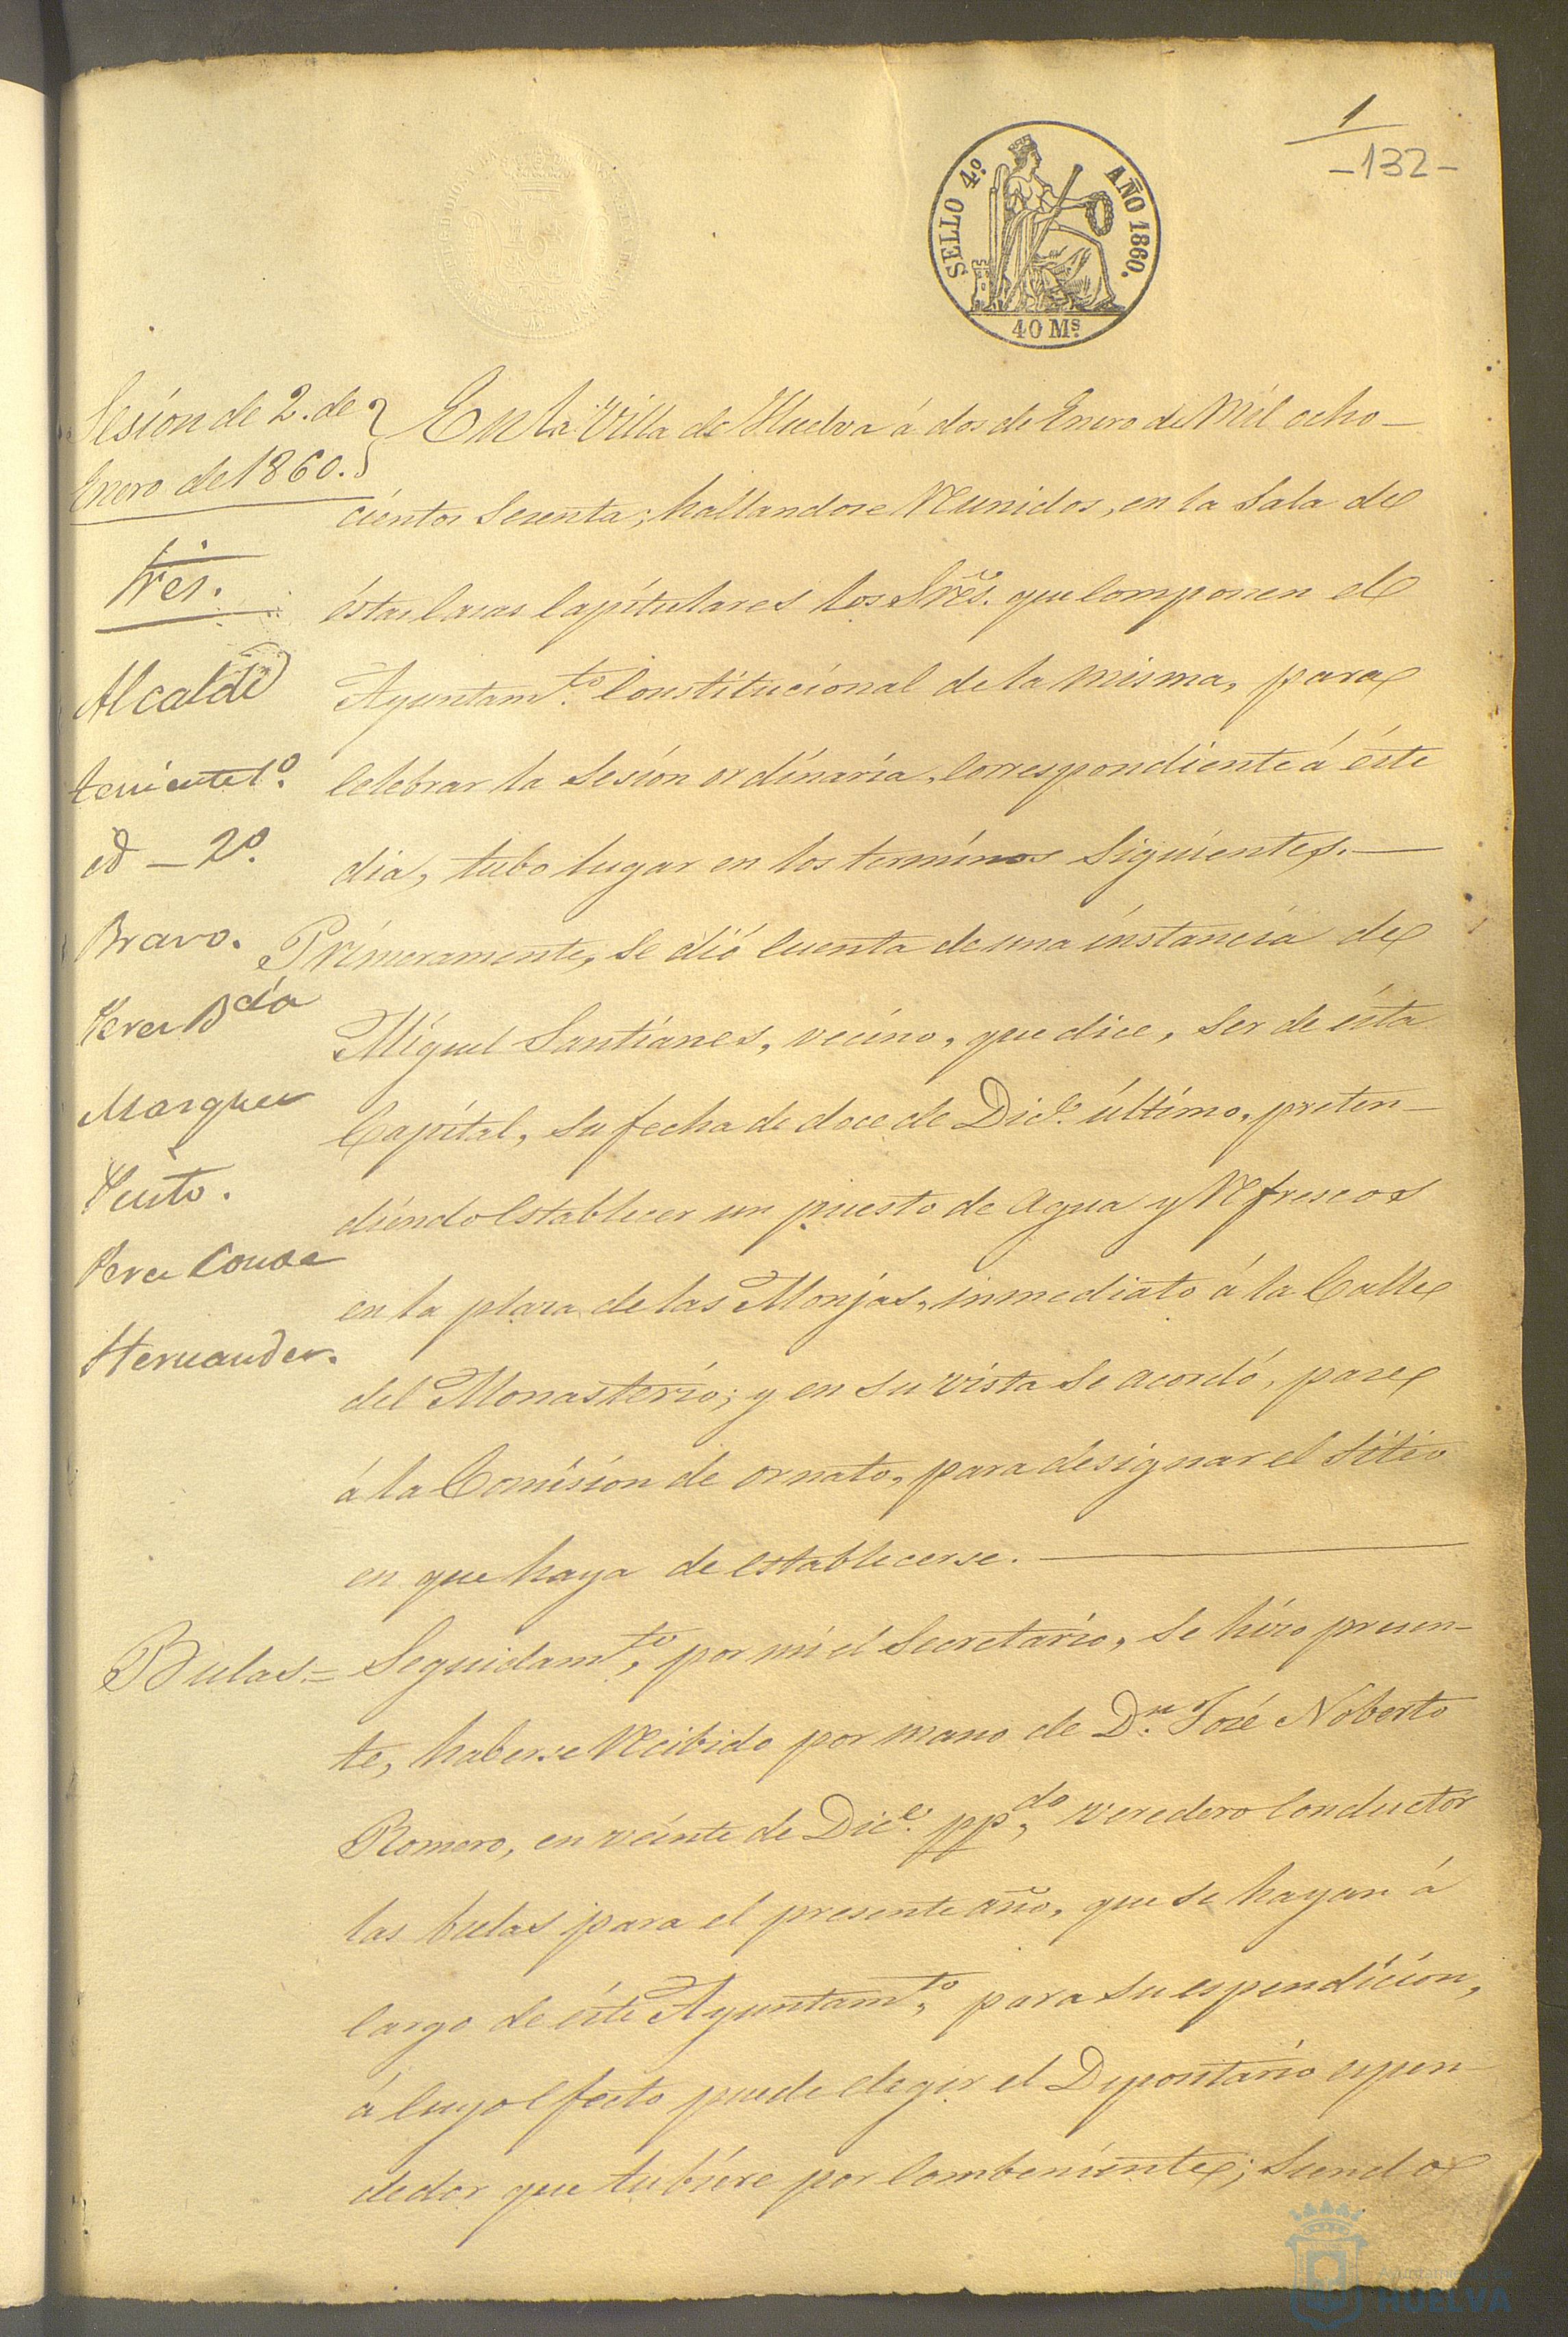 1
-132-
SELLO 4º AÑO 1860.
40 Ms.
Sesion de 2. de
Enero de 1860.
Sres.
Alcalde
teniente 1º.
id - 2º.
Bravo.
Perez Bdía
Marquez
Pinto.
Perez Conde
Hernandez.
En la Villa de Huelva á dos de Enero de Mil ocho-
cientos Sesenta; hallandose Reunidos, en la Sala de
éstas Casas Capitulares los Sres. que Componen el
Ayuntamto. Constitucional de la misma, para
Celebrar la Sesion ordinaria, Correspondiente á éste
dia, tubo lugar en los terminos Siguientes.
Primeramente, Se dió Cuenta de una instancia de
Miguel Santianes, vecino, que dice, Ser de ésta
Capital, Su fecha de doce de Dice. último, preten-
diendo Establecer un puesto de agua y Refrescos
en la plaza de las Monjas, inmediato á la Calle
del Monasterio; y en Su vista Se acordó, pase
á la Comision de ornato, para designar el Sitio
en que haya de establecerse.
Bulas.=
Seguidamte. por mi el Secretario, Se hizo presen-
te, haberse Recibido por mano de Dn. José Noberto
Romero, en veinte de Dice. ppdo, veredero Conductor
las bulas para el presente año, que Se hayan á
Cargo de éste Ayuntamto, para Su espendicion,
á Cuyo Efecto puede elegir el Depositario espen-
dedor que tubiere por Combeniente; Siendo
Ayuntamiento de
HUELVA